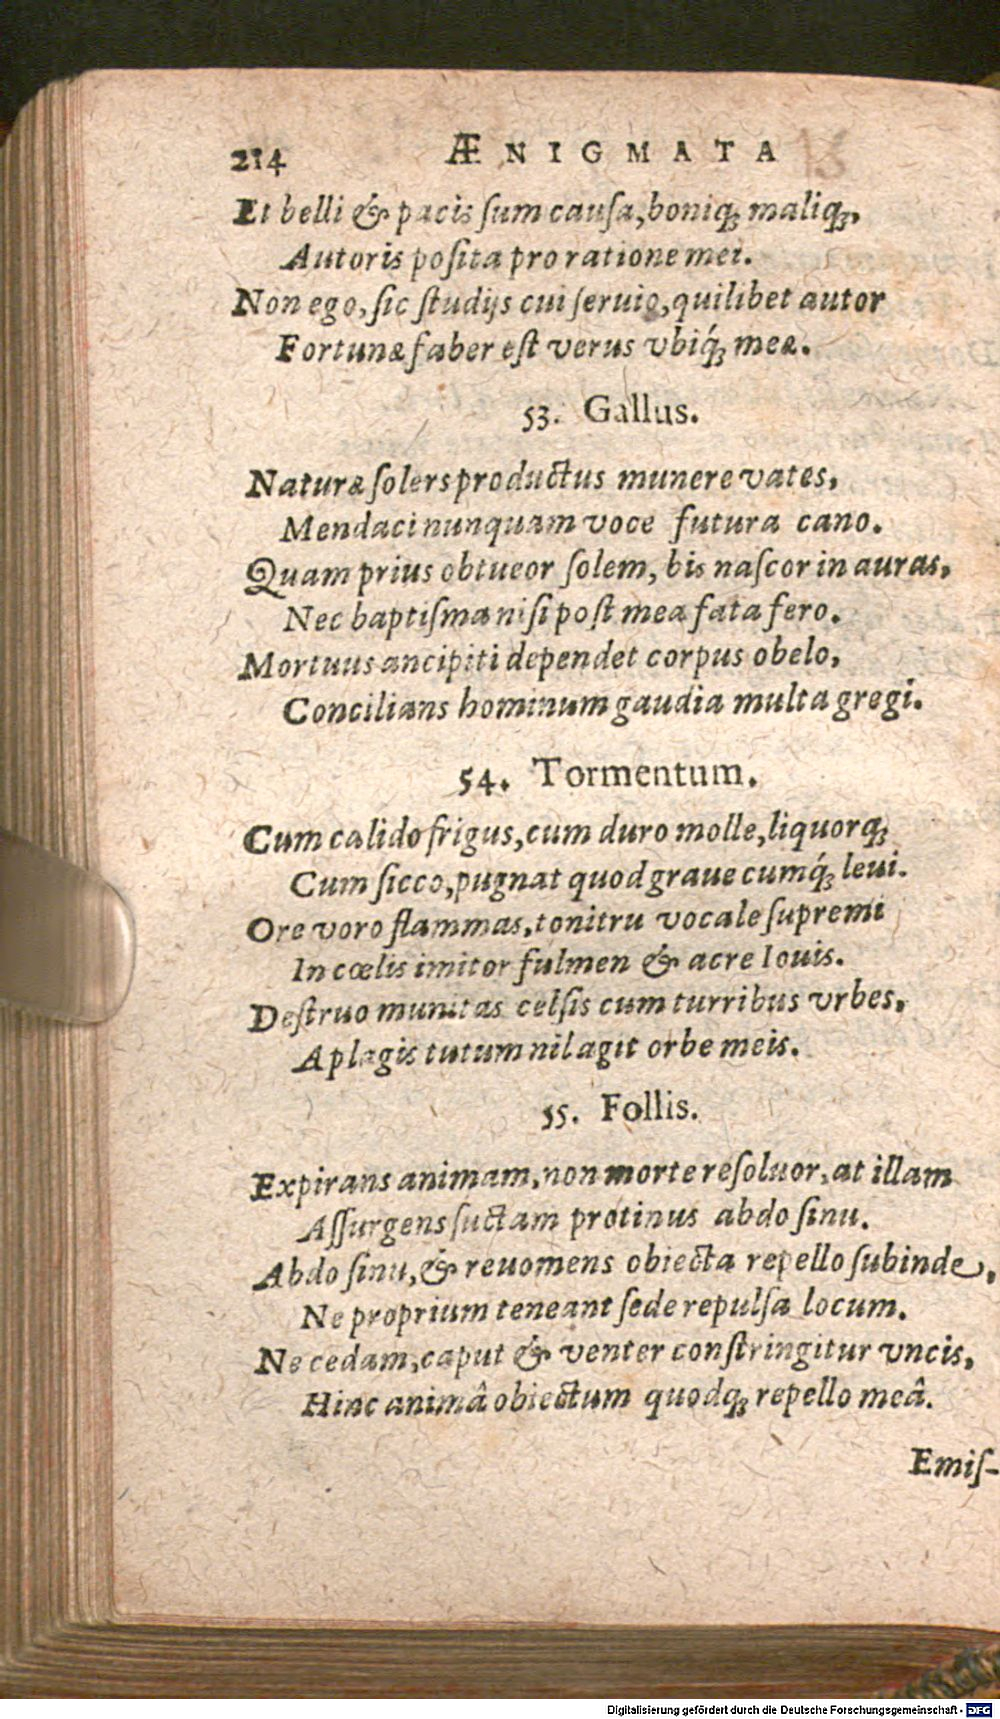 214 ÆNIGMATA
Et belli & pacis ſum cauſa, boniq; maliq;,
Autoris poſita pro ratione mei.
Non ego, ſic ſtudijs cui ſeruio, quilibet autor
Fortunæ faber eſt verus vbiq́; meæ.
53. Gallus.
Naturæ ſolers productus munere vates,
Mendaci nunquam voce futura cano.
Quam prius obtueor ſolem, bis naſcor in auras,
Nec baptiſma niſi poſt mea fata fero.
Mortuus ancipiti dependet corpus obelo,
Concilians hominum gaudia multa gregi.
54. Tormentum.
Cum calido frigus, cum duro molle, liquorq;
Cum ſicco, pugnat quod graue cumq́; leui.
Ore voro flammas, tonitru vocale ſupremi
In cœlis imitor fulmen & acre Iouis.
Deſtruo munitas celſis cum turribus vrbes,
A plagis tutum nil agit orbe meis.
55. Follis.
Expirans animam, non morte reſoluor, at illam
Aſſurgens ſuctam protinus abdo ſinu.
Abdo ſinu, & reuomens obiecta repello ſubinde,
Ne proprium teneant ſede repulſa locum.
Ne cedam, caput & venter conſtringitur vncis,
Hinc animâ obiectum quodq; repello meâ.
Emiſ-
Digitalisierung gefördert durch die Deutsche Forschungsgemeinschaft - DFG